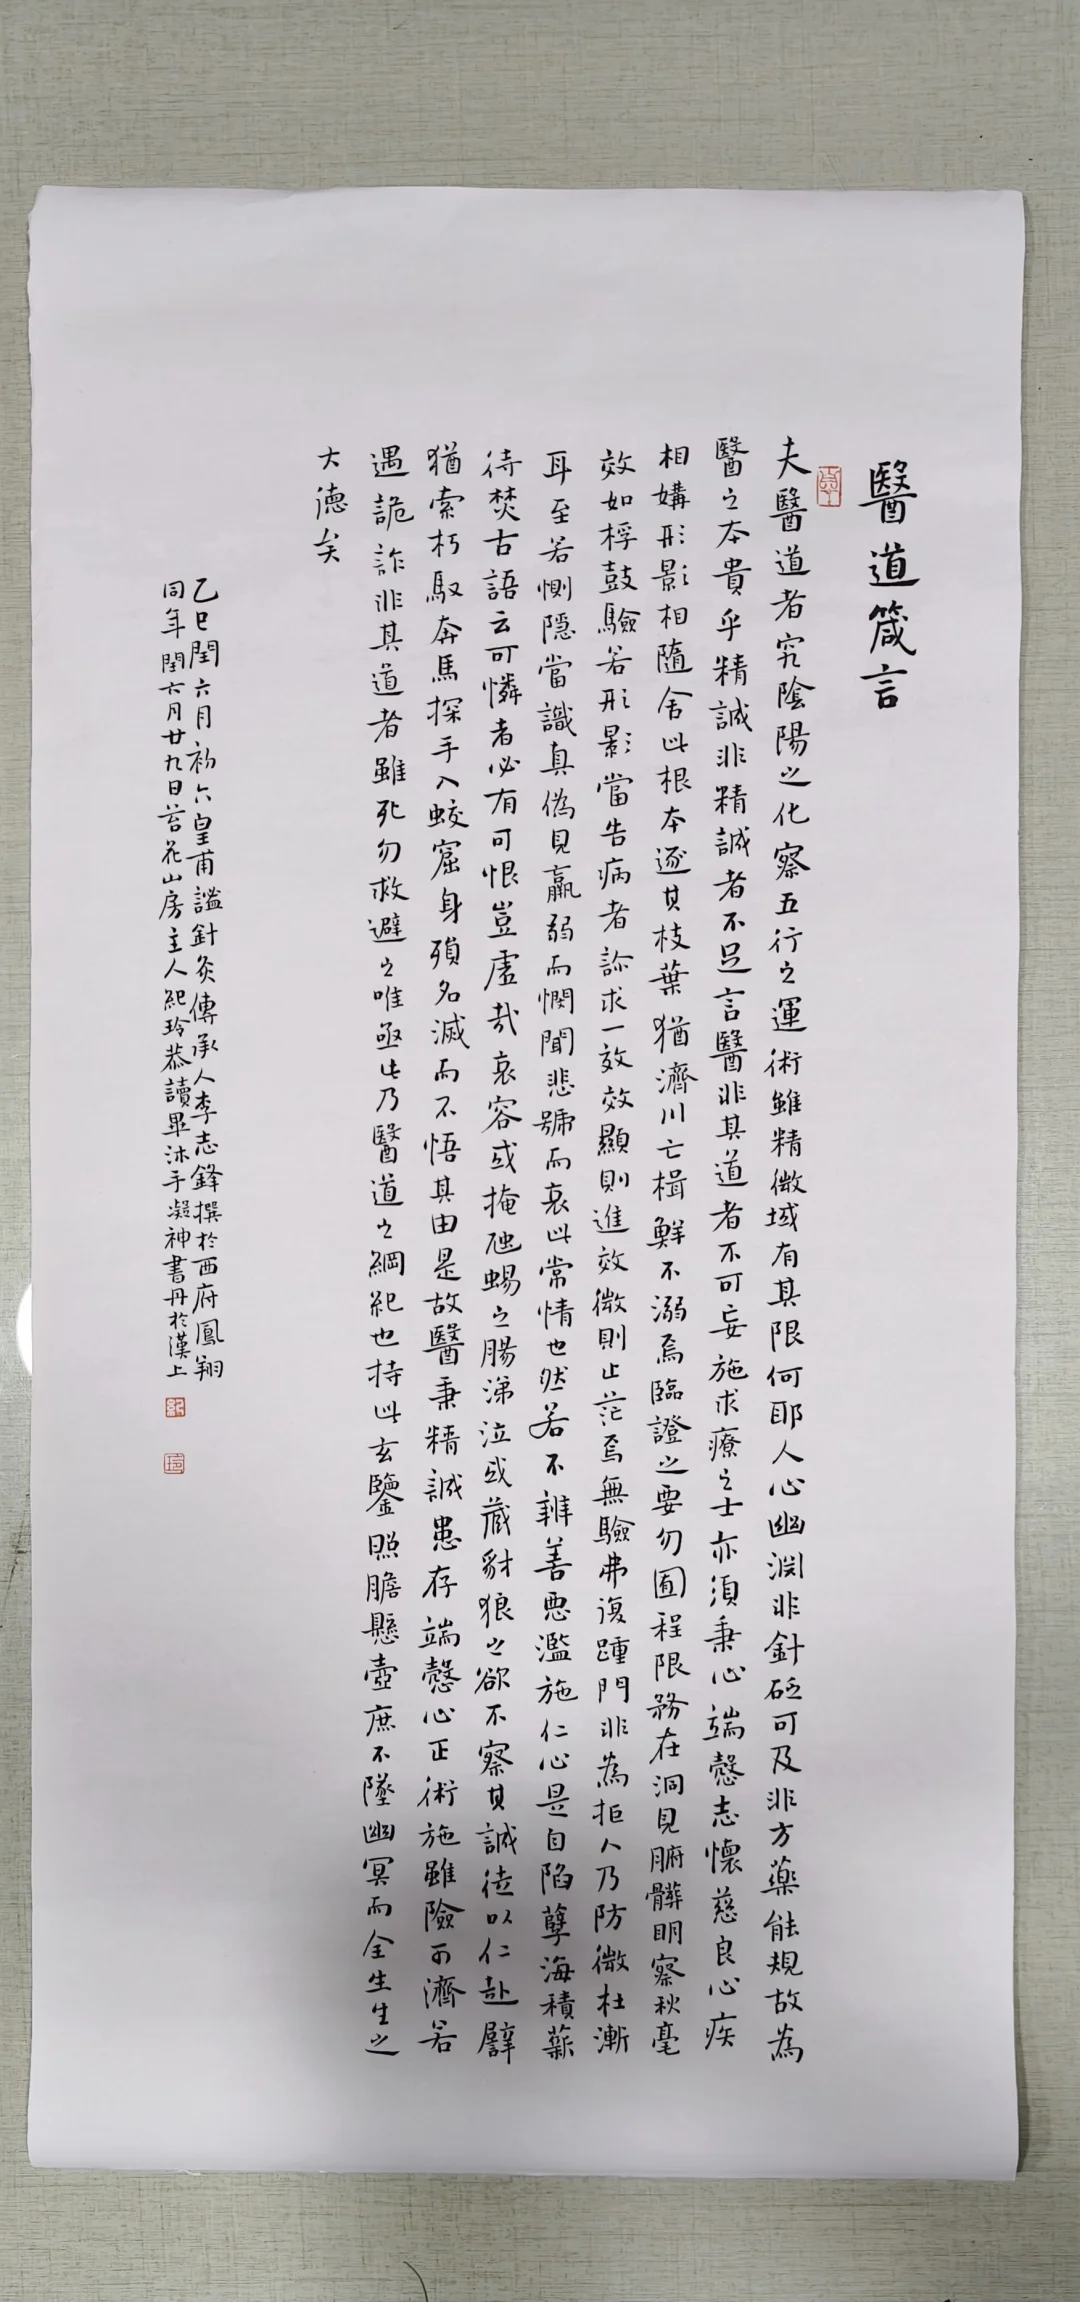 醫道箴言
夫醫道者究陰陽之化察五行之運術雖精微域有其限何耶人心幽淵非針砭可及非方藥能規故為
醫之本貴乎精誠非精誠者不足言醫非其道者不可妄施求療之士亦須秉心端慤志懷慈良心疾
相媾形影相隨舍此根本逐其枝葉猶濟川亡楫鮮不溺焉臨證之要勿囿程限務在洞見腑髒明察秋毫
效如桴鼓驗若形影當告病者診求一效效顯則進效微則止茫焉無驗弗復踵門非為拒人乃防微杜漸
耳至若惻隱當識真偽見羸弱而憫聞悲號而哀此常情也然若不辨善惡濫施仁心是自陷孽海積薪
待焚古語云可憐者必有可恨豈虛哉哀容或掩虺蜴之腸涕泣或藏豺狼之欲不察其誠徒以仁赴譬
猶索朽馭奔馬探手入蛟窟身殞名滅而不悟其由是故醫秉精誠患存端慤心正術施雖險可濟若
遇詭詐非其道者雖死勿救避之唯亟此乃醫道之綱紀也持此玄鑒照膽懸壺庶不墜幽冥而全生生之
大德矣
乙巳閏六月初六皇甫謐針灸傳承人李志鋒撰於西府鳳翔
同年閏六月廿九日苔花山房主人紀玲恭讀畢沐手凝神書丹於漢上
紀
玲